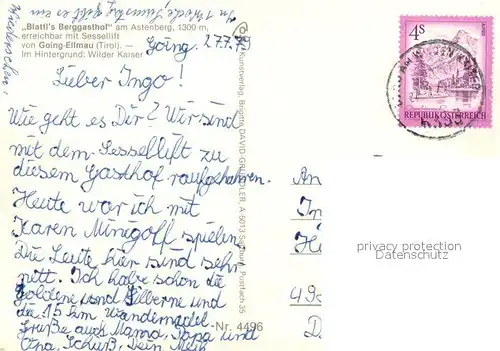 „Blattl's Berggasthof" am Astenberg, 1300 m,
erreichbar mit Sessellift
von Going-Ellmau (Tirol). —
Im Hintergrund: Wilder Kaiser
Going, 27.7.79
Lieber Ingo!
Wie geht es Dir? Wir sind
mit dem Sessellift zu
diesem Gasthof raufgefahren.
Heute war ich mit
Karen Minigolf spielen.
Die Leute hier sind sehr
nett. Ich habe schon die
Goldene und Silberne und
die 15 km Wandernadel.
Grüße auch Mama, Papa und
Opa. Schuß, Dein
Wiedersehen!
In 1 Woche
Kunstverlag, Brigitte DAVID-GRÜNDLER, A-5013 Salzburg, Postfach 35
Nr. 4496
4 S
REPUBLIK ÖSTERREICH
An
In
H
49
D
privacy protection
Datenschutz